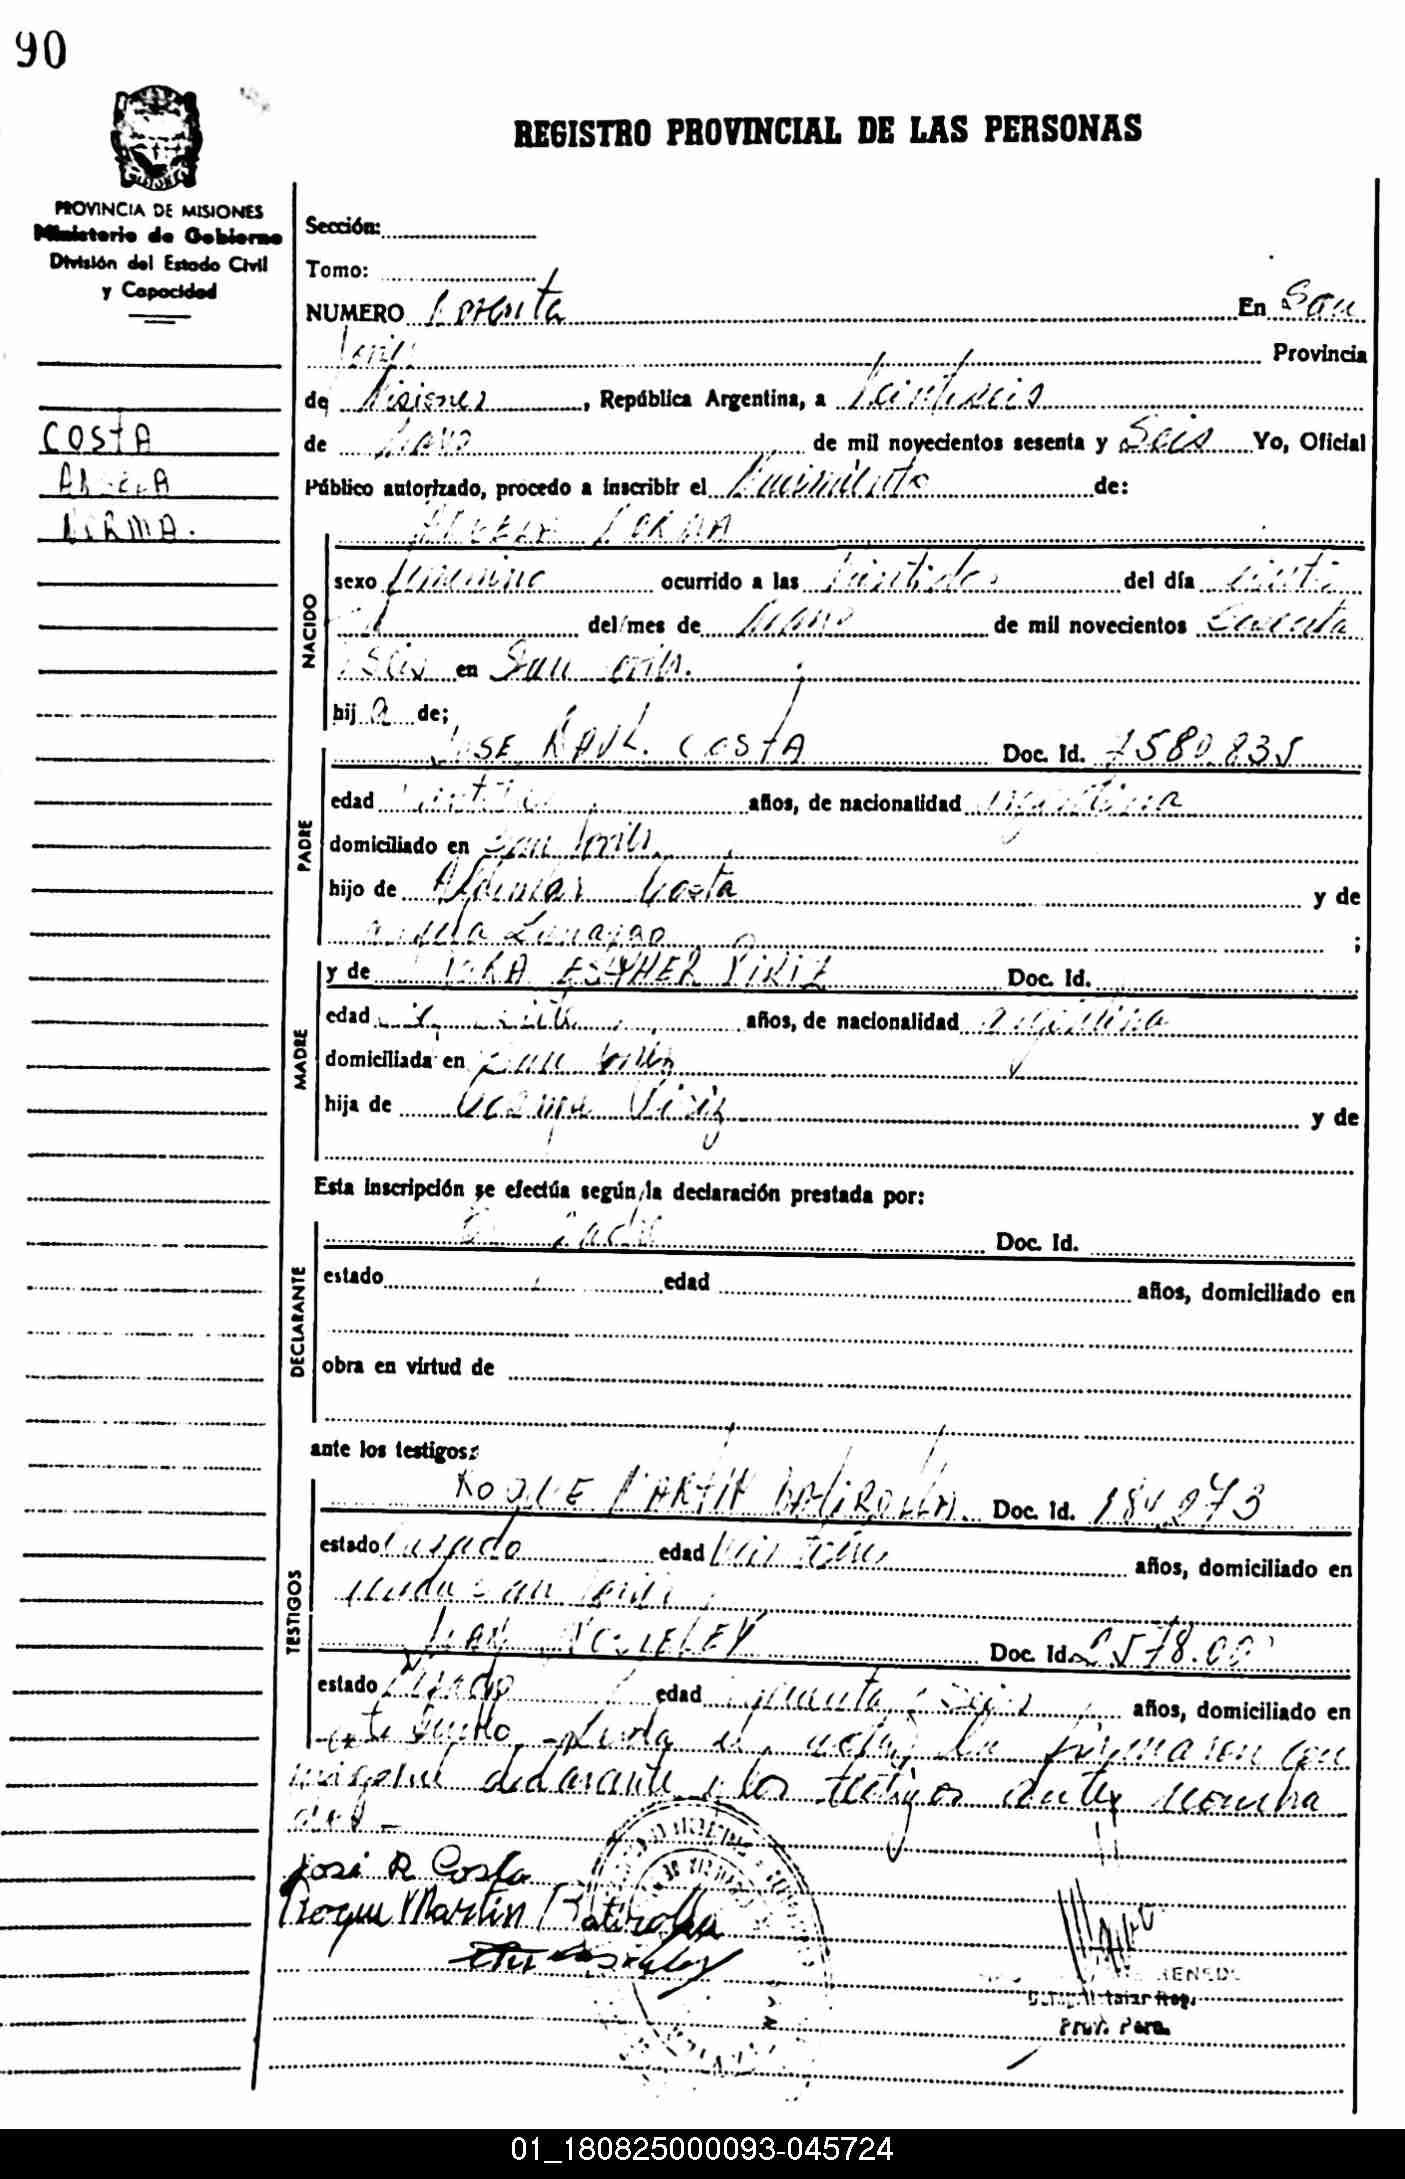 90
REGISTRO PROVINCIAL DE LAS PERSONAS
PROVINCIA DE MISIONES
Ministerio de Gobierno
División del Estado Civil
y Capacidad
COSTA
ANGELA
NORMA.
Sección:
Tomo:
NUMERO Noventa En San
Javier Provincia
de Misiones, República Argentina, a Veintiseis
de Mayo de mil novecientos sesenta y Seis Yo, Oficial
Público autorizado, procedo a inscribir el Nacimiento de:
ANGELA NORMA
NACIDO
sexo femenino ocurrido a las veintidos del día veinti
del mes de Mayo de mil novecientos sesenta
y Seis en San Javier.
hija de:
PADRE
JOSE RAUL COSTA Doc. Id. 7580.835
edad años, de nacionalidad argentina
domiciliado en San Javier
hijo de Aldemar Costa y de
;
MADRE
y de ESTHER PIRIZ Doc. Id.
edad años, de nacionalidad argentina
domiciliada en San Javier
hija de Ocampo Piriz y de
Esta inscripción se efectúa según la declaración prestada por:
DECLARANTE
El Padre Doc. Id.
estado edad años, domiciliado en
obra en virtud de
ante los testigos:
TESTIGOS
ROQUE MARTIN BATIROLLA Doc. Id. 184.973
estado Casado edad años, domiciliado en
San Javier
JUAN Doc. Id. 2578.00
estado Casado edad cincuenta y Seis años, domiciliado en
este pueblo - Leida el acta, la firmaron con
migo el declarante y los testigos antes nombra
dos -
José R Costa
Roque Martin Batirolla
Prov. Pers.
01_180825000093-045724